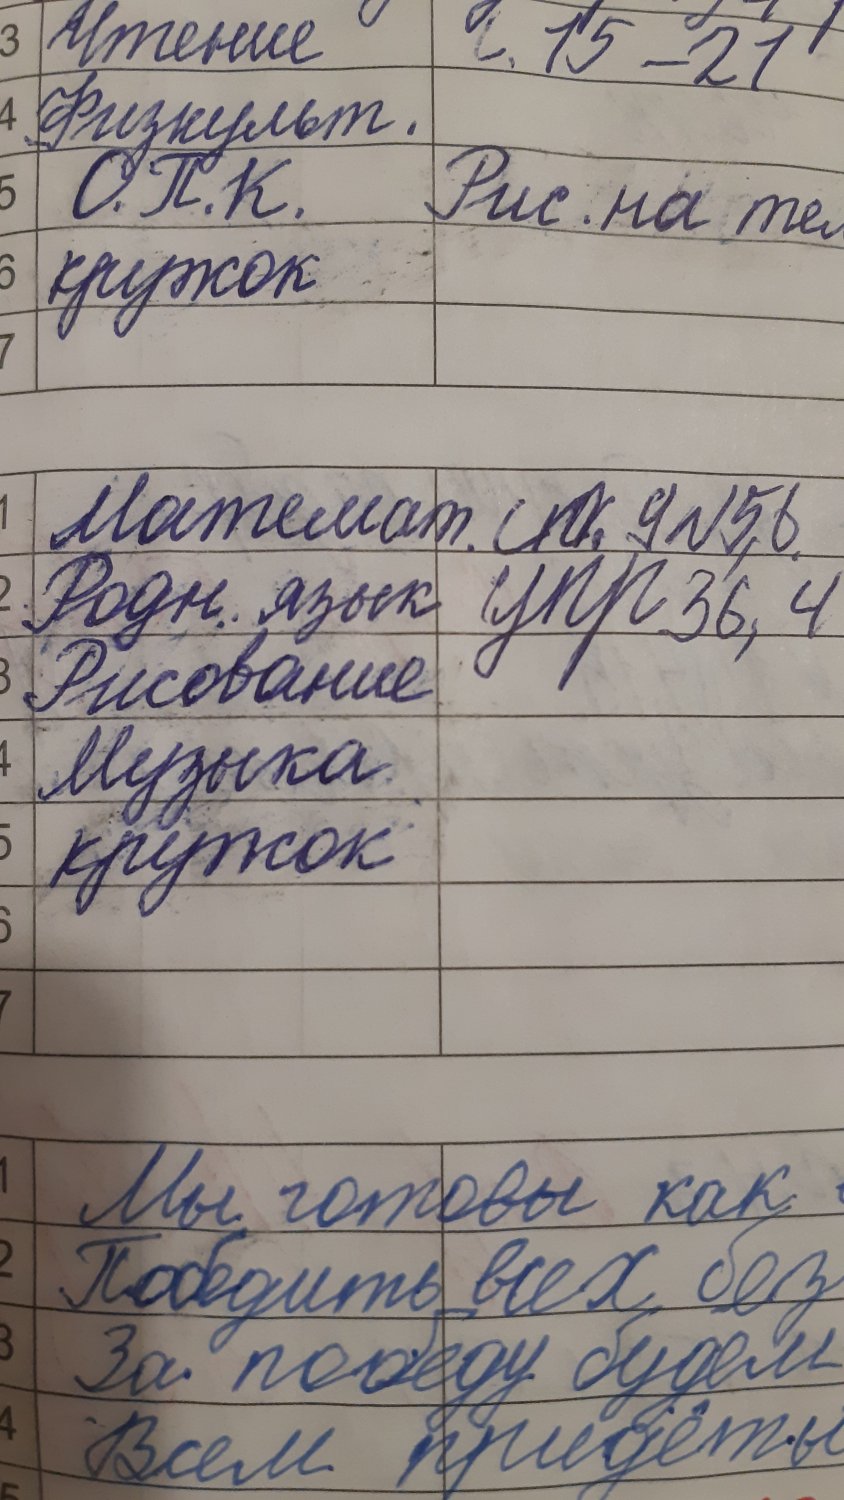 3 Чтение с. 15-21
4 Физкульт.
5 О.П.К. Рис. на
6 кружок
7
1 Математ. стр. 9 №5,6.
2 Родн. язык упр 36, 4
3 Рисование
4 Музыка
5 кружок
6
7
1 Мы готовы как
2 Победить всех, без
3 За победу будем
4 Всем